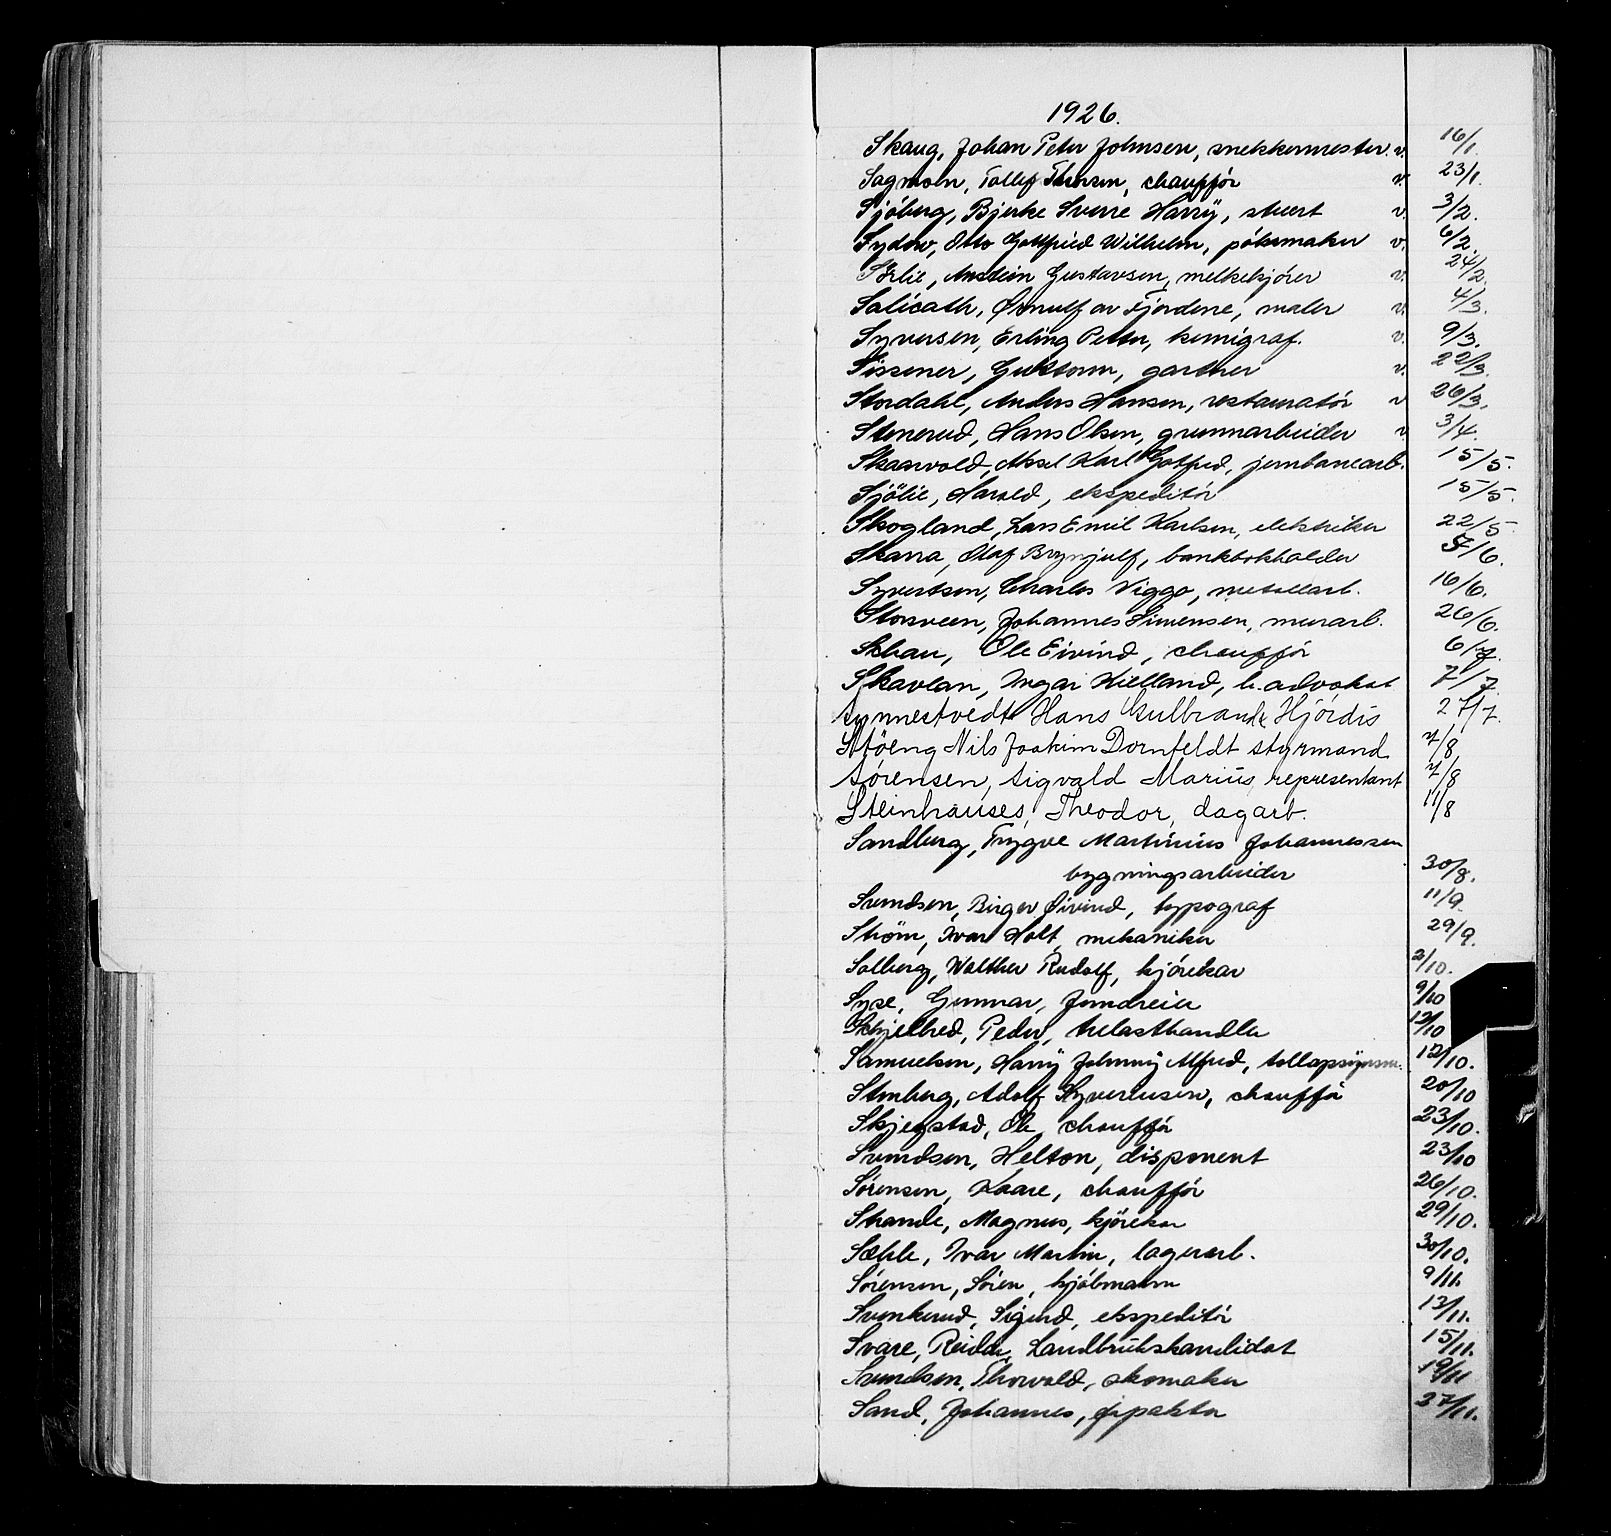 1926.
Skaug, Johan Peter Johnsen, snekkermester. v. 16/1.
Sagmoln, Tollef Thorsen, chaufför v. 23/1.
Sjöberg, Bjerke Sverre Harry, stuert v. 3/2.
Sydow, Otto Gottfried Wilhelm, pölsemaker v. 6/2.
Sörlie, Anstein Gustavsen, melkekjörer v. 24/2.
Salicath, Ørnulf av Fjordene, maler v. 4/3.
Syversen, Erling Petter, kemigraf. v. 9/3.
Sissener, Guttorm, gartner v. 22/3.
Stordahl, Anders Hansen, restauratör v 26/3.
Stenerud, Hans Olsen, grunnarbeider v 3/4.
Skaarvold, Aksel Karl Gotfred, jernbanearb. 15/5.
Sjölie, Harald, ekspeditör 15/5.
Skogland, Lars Emil Karlsen, elektriker 22/5
Skarra, Olaf Brynjulf, bankbokholder 5/6.
Syvertsen, Charles Viggo, metallarb. 16/6.
Storsveen, Johannes Simensen, murarb. 26/6.
Schau, Ole Eivind, chaufför 6/7.
Skavlan, Ingar Kielland, h.advokat 7/7
Synnestvedt Hans Gulbrand Hjördis 27/7.
Stöeng Nils Joakim Dornfeldt styrmand 7/8
Sörensen, Sigvald Marius, representant 7/8
Steinhauses, Theodor, dagarb. 11/8
Sandberg, Trygve Martinius Johannessen
bygningsarbeider 30/8.
Svendsen, Birger Øivind, typograf 11/9.
Strøm, Ivar Holt, mekaniker 29/9.
Solberg, Walther Rudolf, kjörekar 2/10.
Syse, Gunnar, jerndreier 9/10
Skjelbred, Peder, trelasthandler 12/10
Samuelsen, Harry Johnny Alfred, tollopsynsm. 12/10.
Stenberg, Adolf Syvertsen, chaufför 20/10
Skjegstad, Ole, chaufför 23/10.
Svendsen, Helton, disponent 23/10
Sörensen, Kaare, chaufför 26/10.
Strande, Magnus, kjörekar 29/10.
Sæhle, Ivar Martin, lagerarb. 30/10.
Sörensen, Sören, kjöbmann 9/11.
Svenkerud, Sigurd, ekspeditör 13/11.
Svare, Reidar, Landbrukskandidat 15/11.
Svendsen, Thorvald, skomaker 19/11
Sand, Johannes, forpakter 27/11.